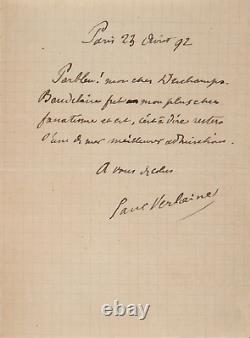 Paris 23 Août 92
Parbleu! mon cher Deschamps.
Baudelaire fut mon plus cher
fanatisme et est, c'est à dire restera
l'une de mes meilleures admirations.
A vous de cœur
Paul Verlaine
© ebay.com